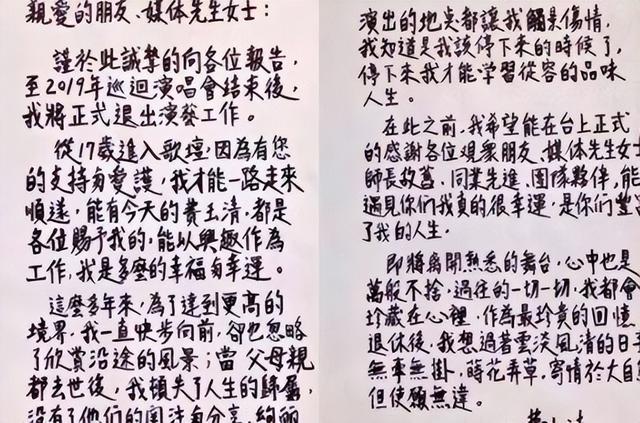 親愛的朋友、媒体先生女士：
謹於此誠摯的向各位報告，
至2019年巡迴演唱會結束後，
我將正式退出演藝工作。
從17歲進入歌壇，因為有您
的支持與愛護，我才能一路走來
順遂，能有今天的費玉清，都是
各位賜予我的，能以興趣作為
工作，我是多麼的幸福與幸運。
這麼多年來，為了達到更高的
境界，我一直快步向前，卻也忽略
了欣賞沿途的風景；當父母親
都去世後，我頓失了人生的歸屬，
沒有了他們的關注與分享，絢麗
演出的地点都讓我觸景傷情，
我知道是我該停下來的時候了，
停下來我才能学習從容的品味
人生。
在此之前，我希望能在台上正式
的感謝各位觀衆朋友、媒体先生女士
師長故舊、同業先進、團隊夥伴，能
遇見你們我真的很幸運，是你們豐
了我的人生。
即將離開熟悉的舞台，心中也是
萬般不捨，過往的一切一切，我都會
珍藏在心裡，作為最珍貴的回憶
退休後，我想過著雲淡風清的日子
無牽無掛，蒔花弄草，寄情於大自
但使願無違。